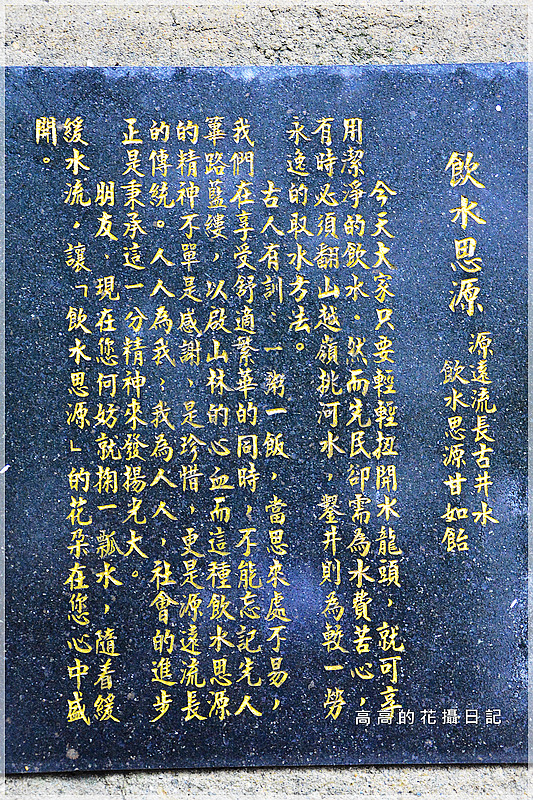 飲水思源
源遠流長古井水
飲水思源甘如飴
今天大家只要輕輕扭開水龍頭，就可享
用潔淨的飲水．然而先民卻需為水費苦心，
有時必須翻山越嶺挑河水，鑿井則為較一勞
永逸的取水方法。
古人有訓：一粥一飯，當思來處不易，
我們在享受舒適繁華的同時，不能忘記先人
篳路藍縷，以啟山林的心血而這種飲水思源
的精神不單是感謝，是珍惜，更是源遠流長
的傳統。人人為我；我為人人，社會的進步
正是秉承這一分精神來發揚光大。
朋友．現在您何妨就掬一瓢水，隨着緩
緩水流，讓「飲水思源」的花朵在您心中盛
開。
高高的花攝日記